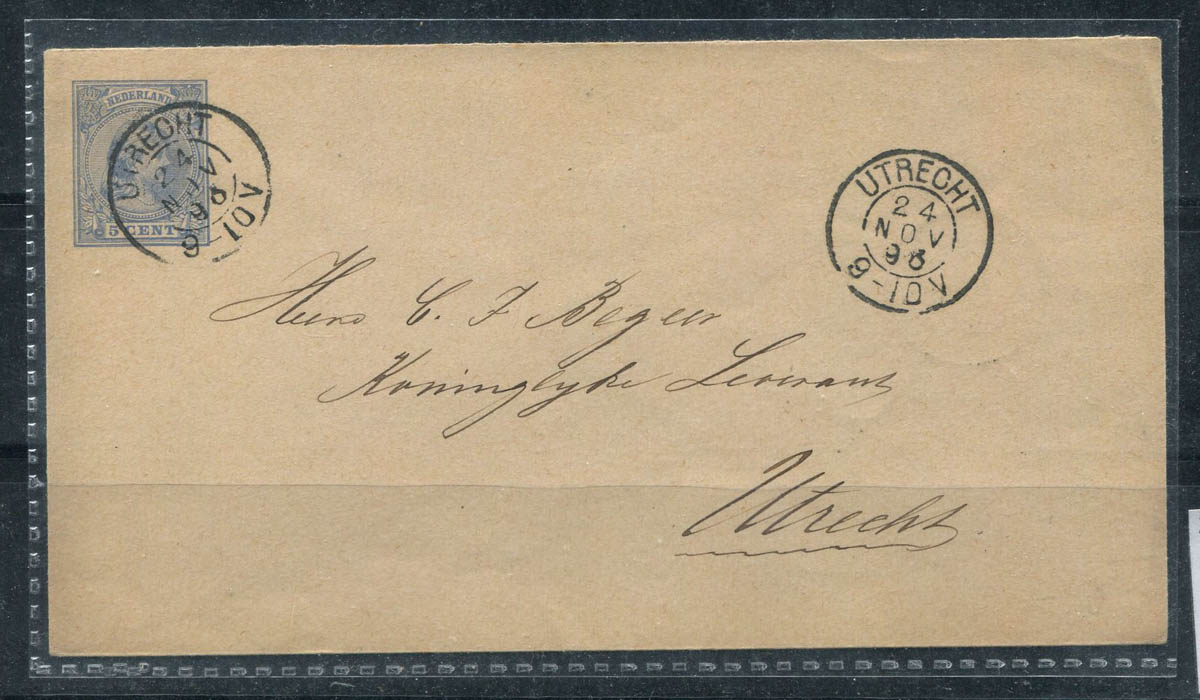 NEDERLAND
5 CENT
UTRECHT
24
NOV
96
9-10V
UTRECHT
24
NOV
96
9-10V
Heer C. J. Begeer
Koninglyke Leverant
Utrecht